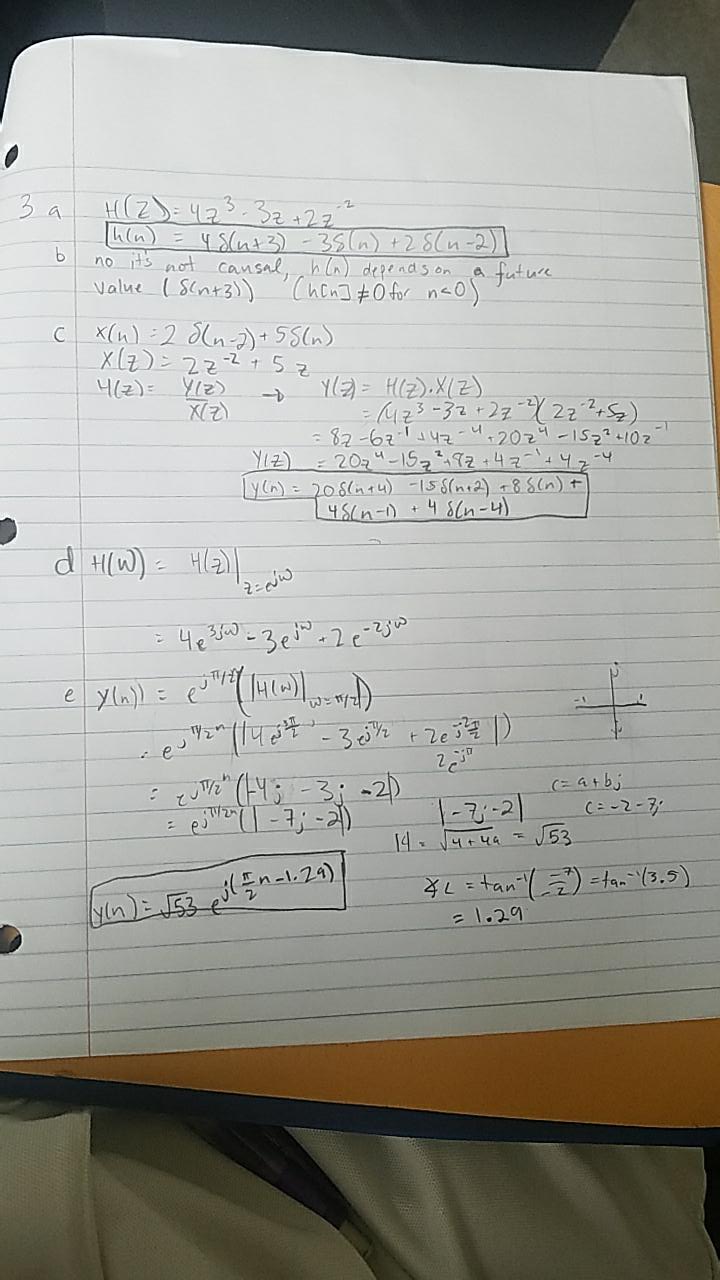 3 a H(Z) = 4z³ - 3z + 2z⁻²
h(n) = 4δ(n+3) - 3δ(n) + 2δ(n-2)
b no it's not causal, h(n) depends on a future
value (δ(n+3)) (h[n] ≠ 0 for n<0)
c x(n) = 2 δ(n-2) + 5δ(n)
X(z) = 2z⁻² + 5z
H(z) = Y(z)/X(z) → Y(z) = H(z).X(z)
= (4z³ - 3z + 2z⁻²)(2z⁻² + 5z)
= 8z - 6z⁻¹ + 4z⁻⁴ + 20z⁴ - 15z² + 10z⁻¹
Y(z) = 20z⁴ - 15z² + 8z + 4z⁻¹ + 4z⁻⁴
y(n) = 20δ(n+4) - 15δ(n+2) + 8δ(n) +
4δ(n-1) + 4δ(n-4)
d H(W) = H(z)|z=e^jω
= 4e^3jω - 3e^jω + 2e^-2jω
e y(n)) = e^jπ/2n (|H(ω)|ω=π/2|)
= e^jπ/2n (|4e^j3π/2 - 3e^jπ/2 + 2e^-j2π/2|)
2e^-jπ
= e^jπ/2n (|-4j - 3j - 2|)
c = a + bj
= e^jπ/2n (|-7j - 2|)
|-7j - 2| c = -2 - 7j
|4 = √4+49 = √53
y(n) = √53 e^j(π/2 n - 1.29)
∡c = tan⁻¹(-7/-2) = tan⁻¹(3.5)
= 1.29